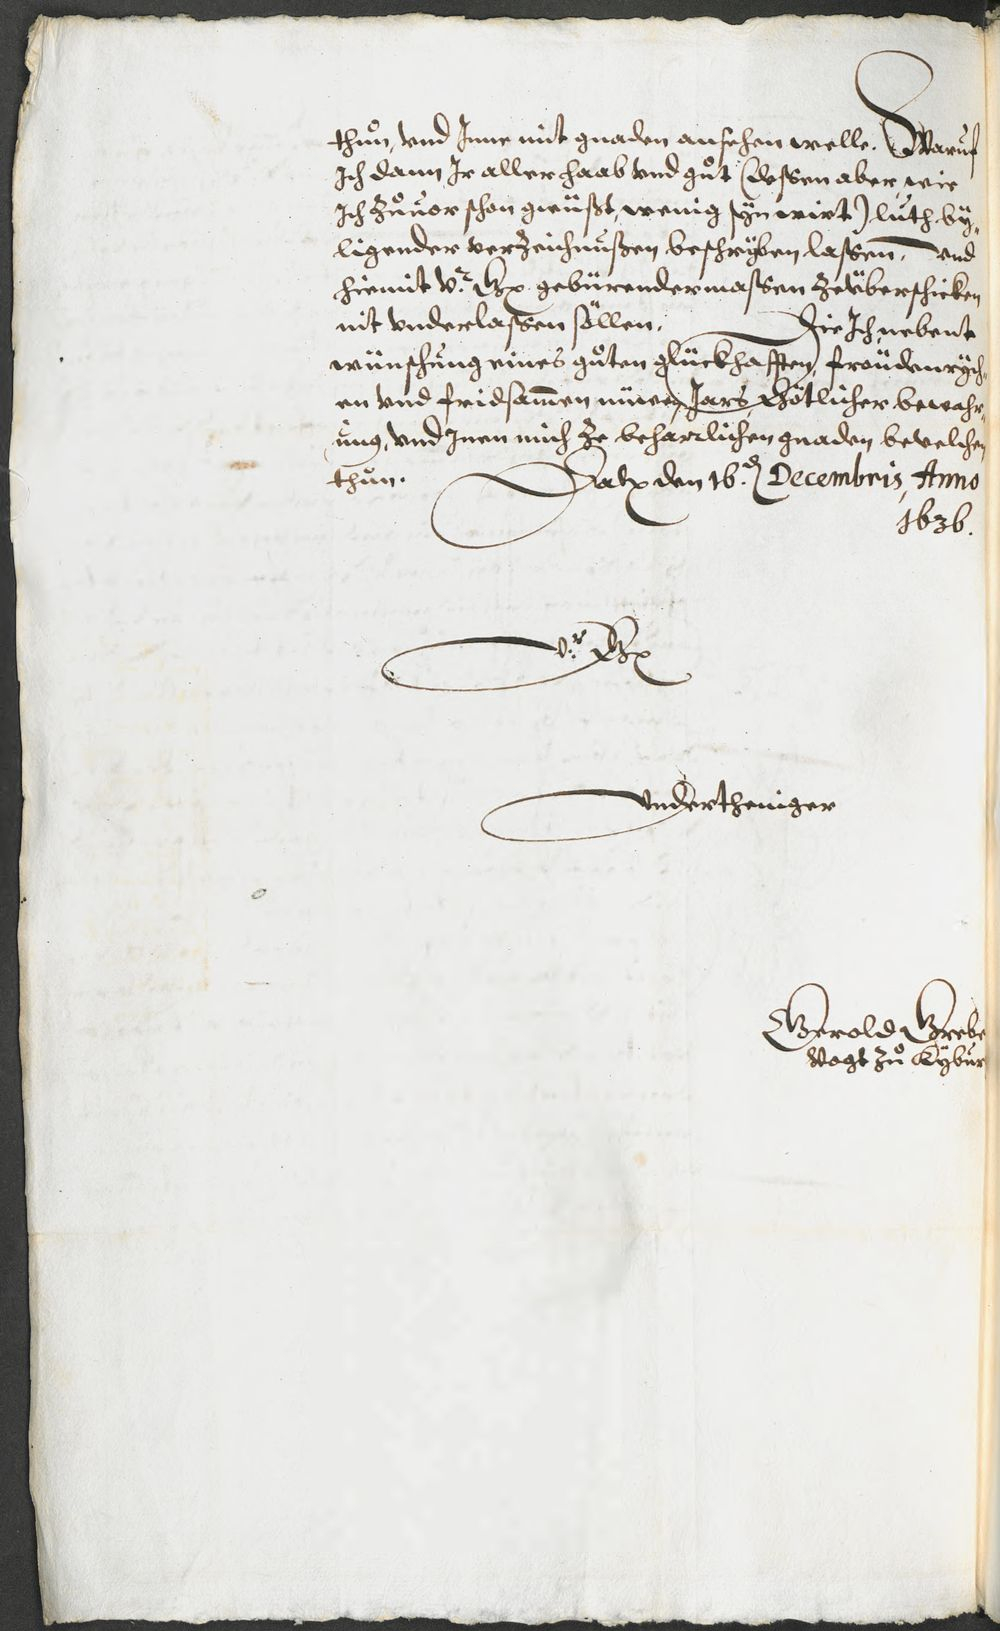 thůn, vnd Inne mit gnaden ansehen welle. Waruf
Ich dann Ir aller haab vnd gůt (dessen aber, wie
Ich zůuor schon gwüßt, wenig syn wirt) luth by„
ligender verzeichnußen beschryben lassen, vnd
hiemit V.r Gn. gebürendermassen ze überschicken
nit vnderlassen söllen. Die Ich nebent
wünschung eines gůten glückhafften, fröüdenrych„
en vnd fridsamen nüwen Jars, Götlicher bewahr„
ung, vnd Inen mich ze beharrlichen gnaden bevelchen
thun. Dat. den 16.t Decembris, Anno
1636.
V.r Gn.
Vndertheniger
Gerold Grebe
Vogt zů Kybur